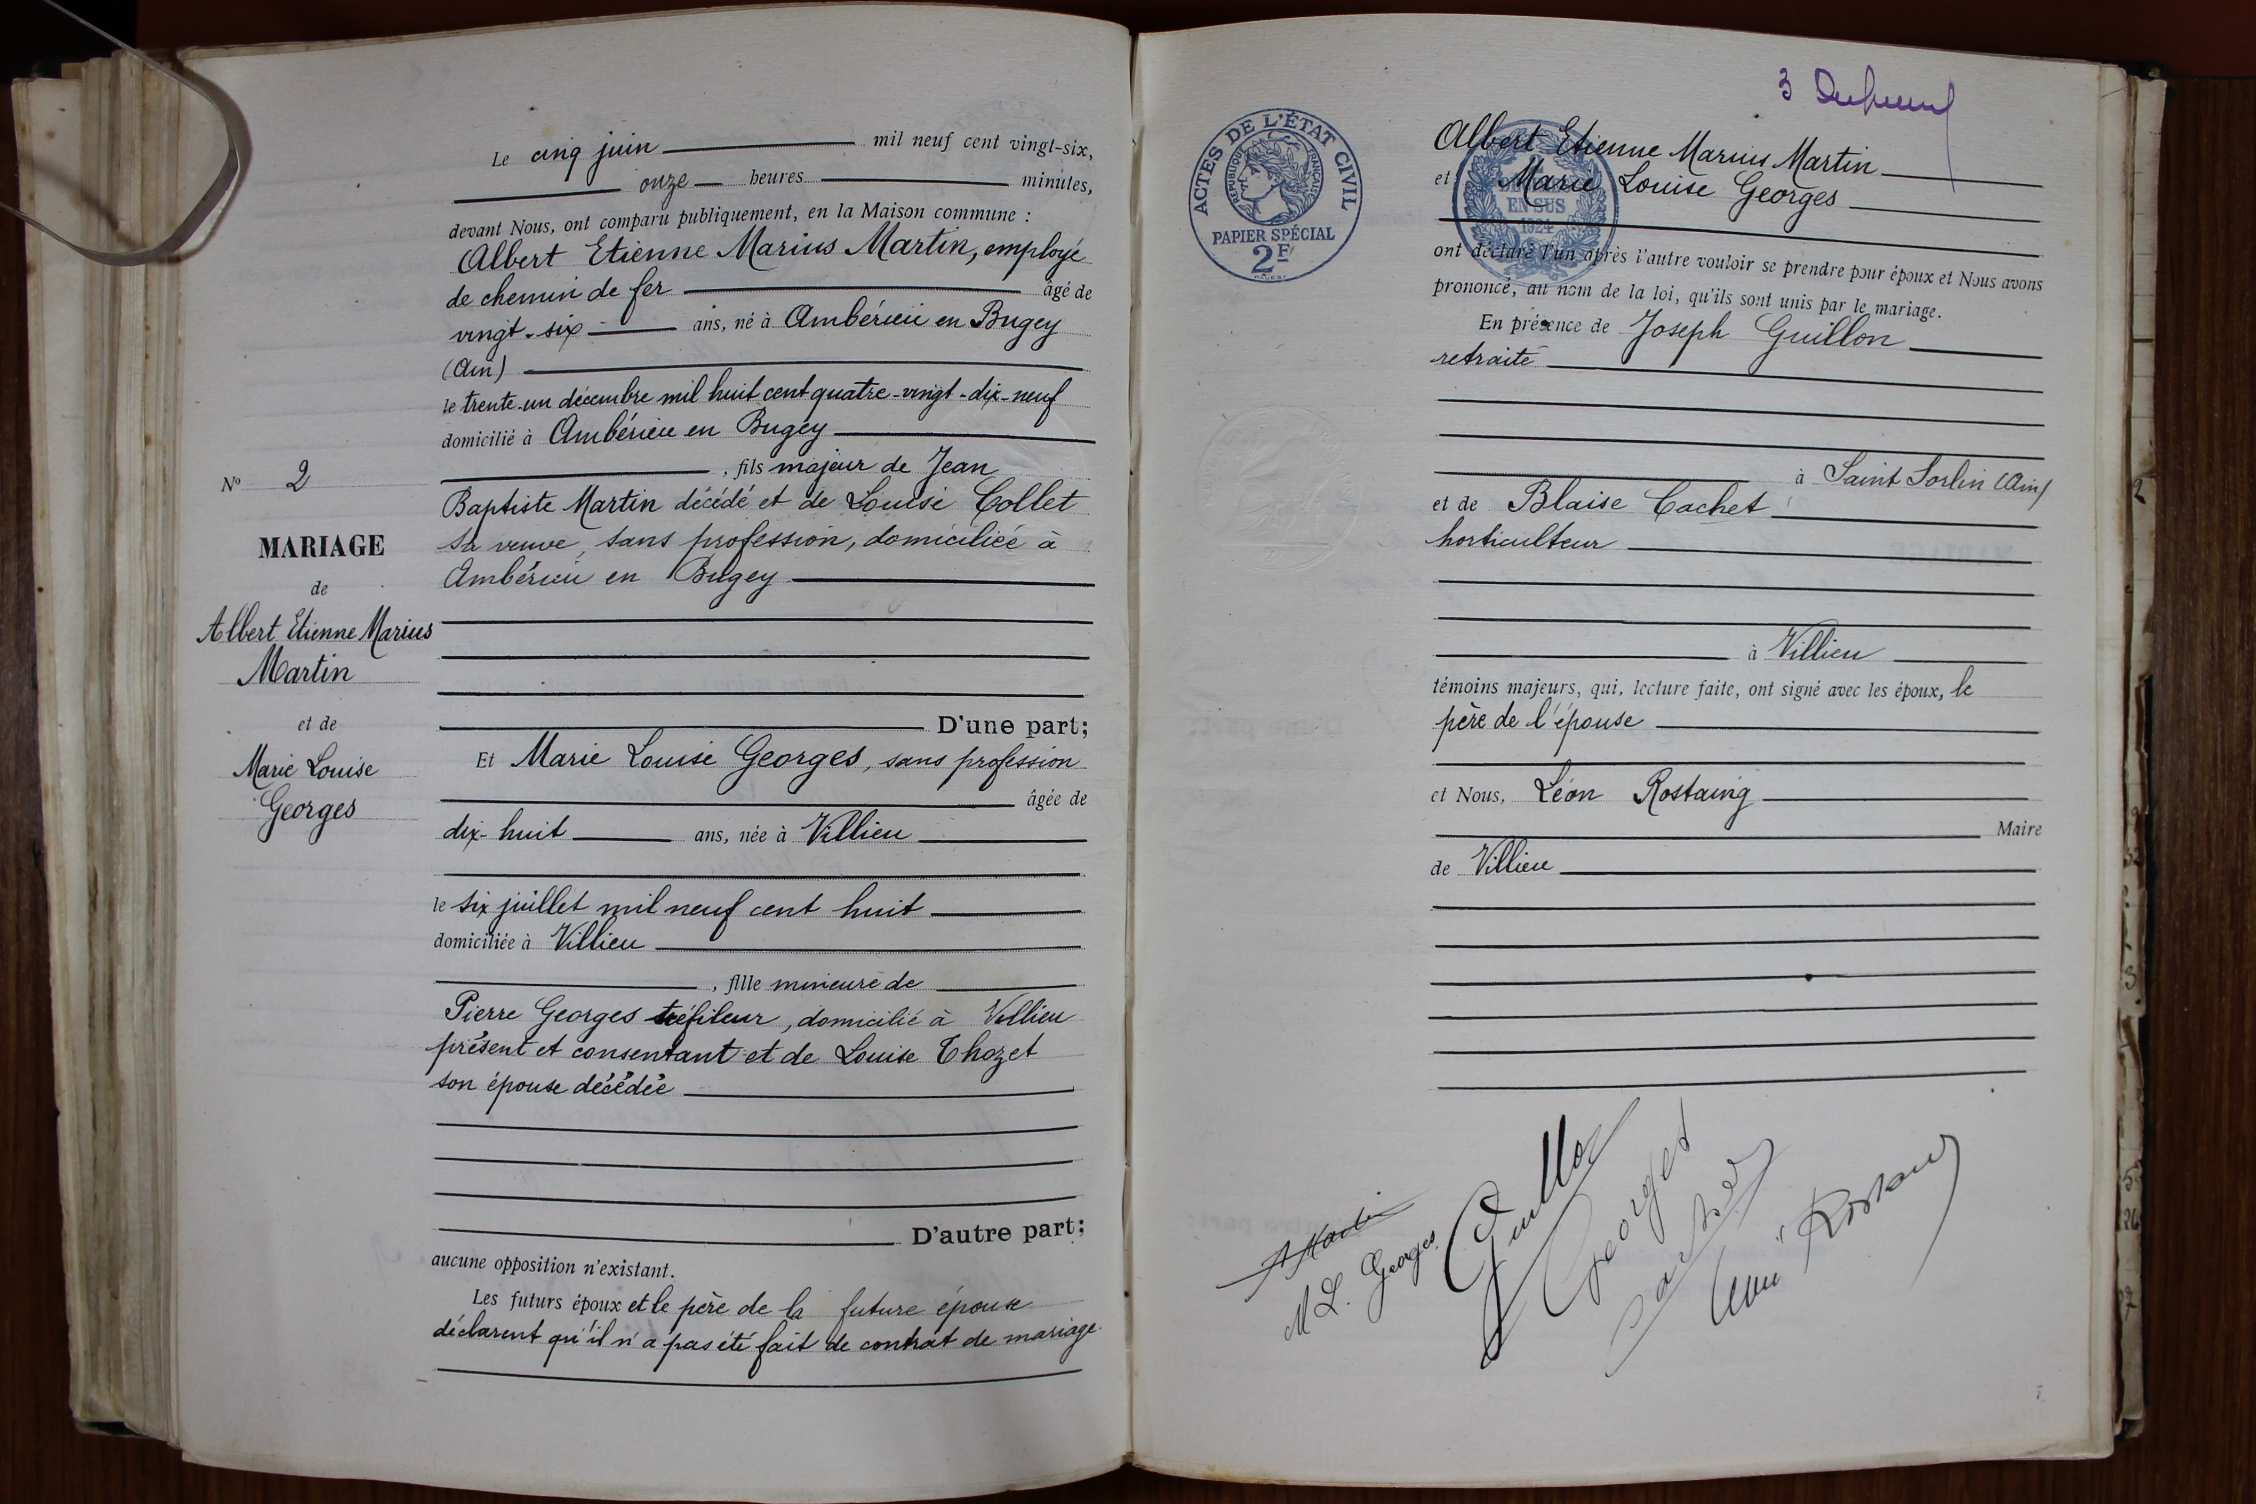 Le cinq juin mil neuf cent vingt-six,
onze heures minutes,
devant Nous, ont comparu publiquement, en la Maison commune :
Albert Etienne Marius Martin, employé
de chemin de fer âgé de
vingt-six ans, né à Ambérieu en Bugey
(Ain)
le trente-un décembre mil huit cent quatre-vingt-dix-neuf
domicilié à Ambérieu en Bugey
, fils majeur de Jean
Baptiste Martin décédé et de Louise Collet
sa veuve, sans profession, domiciliée à
Ambérieu en Bugey
D'une part;
Et Marie Louise Georges, sans profession
âgée de
dix-huit ans, née à Villieu
le six juillet mil neuf cent huit
domiciliée à Villieu
, fille mineure de
Pierre Georges tréfileur, domicilié à Villieu
présent et consentant et de Louise Thozet
son épouse décédée
D'autre part;
aucune opposition n'existant.
Les futurs époux et le père de la future épouse
déclarent qu'il n'a pas été fait de contrat de mariage.
N° 2
MARIAGE
de
Albert Etienne Marius
Martin
et de
Marie Louise
Georges
3
ACTES DE L'ÉTAT CIVIL
RÉPUBLIQUE FRANÇAISE
PAPIER SPÉCIAL
2F
EN SUS
1924
Albert Etienne Marius Martin
et Marie Louise Georges
ont déclaré l'un après l'autre vouloir se prendre pour époux et Nous avons
prononcé, au nom de la loi, qu'ils sont unis par le mariage.
En présence de Joseph Guillon
retraité
à Saint Sorlin (Ain)
et de Blaise Cachet
horticulteur
à Villieu
témoins majeurs, qui, lecture faite, ont signé avec les époux, le
père de l'épouse
et Nous, Léon Rostaing
Maire
de Villieu
A Martin
M L. Georges
Guillon
Georges
Cachet
Léon Rostaing